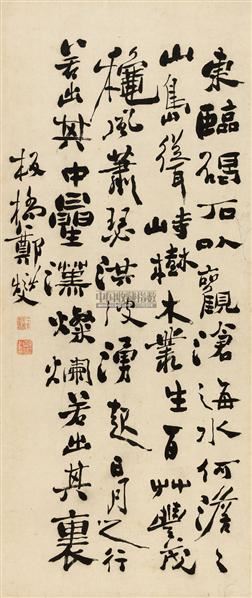 東臨碣石以觀滄海水何澹々
山島聳峙樹木叢生百艸豐茂
穐風蕭瑟洪波湧起日月之行
若出其中星漢燦爛若出其裏
板橋鄭燮